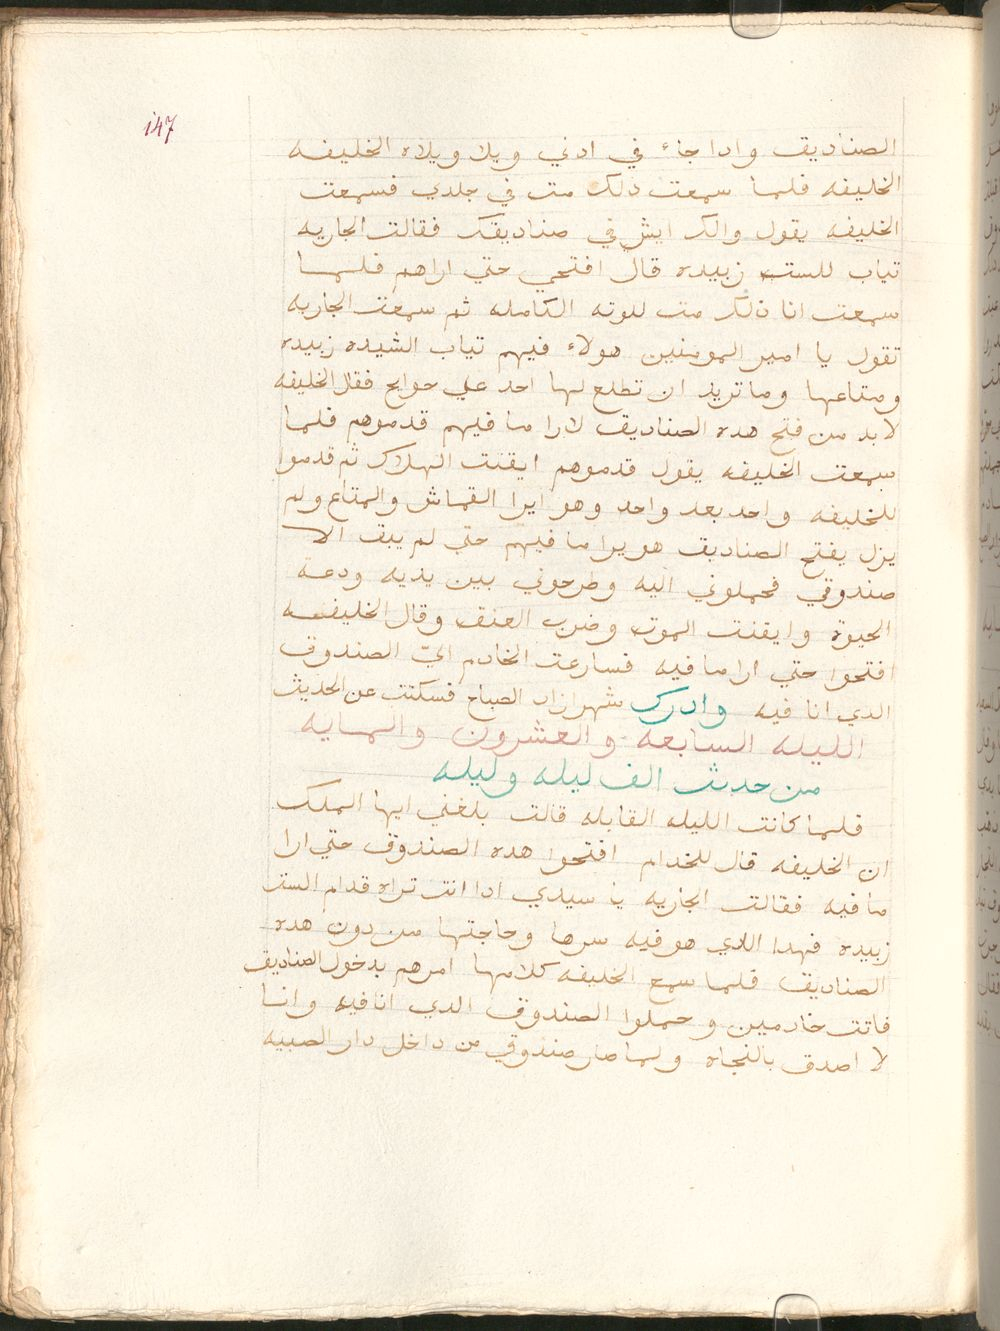 147
الصناديق وادا جاء في ادني ويلا ويلاه الخليفه
الخليفه فلما سمعت دلك مت في جلدي فسمعت
الخليفه يقول والك ايش في صناديقك فقالت الجاريه
تياب للست زبيده قال افتحي حتي اراهم فلما
سمعت انا دلك مت للوته الكامله ثم سمعت الجاريه
تقول يا امير المومنين هولاء فيهم تياب الشيده زبيده
ومتاعها وما تريد ان تطلع لها احد علي حوايج فقال الخليفه
لا بد من فتح هده الصناديق لارا ما فيهم قدموهم فلما
سمعت الخليفه يقول قدموهم ايقنت الهلاك ثم قدموا
للخليفه واحد بعد واحد وهو ايرا القماش والمتاع ولم
يزل يفتح الصناديق هو يرا ما فيهم حتي لم يبق الا
صندوقي فحملوني اليه وطرحوني بين يديه ودعة
الحيوة وايقنت الموت وضرب العنق وقال الخليفه
افتحوا حتي ارا ما فيه فسارعت الخادم اليّ الصندوق
الدي انا فيه وادرك شهرازاد الصباح فسكتت عن الحديث
الليله السابعه والعشرون والمايه
من حديث الف ليله وليله
فلما كانت الليله القابله قالت بلغني ايها الملك
ان الخليفه قال للخدام افتحوا هده الصندوق حتي ارا
ما فيه فقالت الجاريه يا سيدي ادا انت تراه قدام الست
زبيده فهدا اللدي هو فيه سرها وحاجتها من دون هده
الصناديق فلما سمع الخليفه كلامها امرهم بدخول الصناديق
فاتت خادمين وحملوا الصندوق الدي انا فيه وانا
لا اصدق بالنجاه ولما صار صندوقي من داخل دار الصبيه